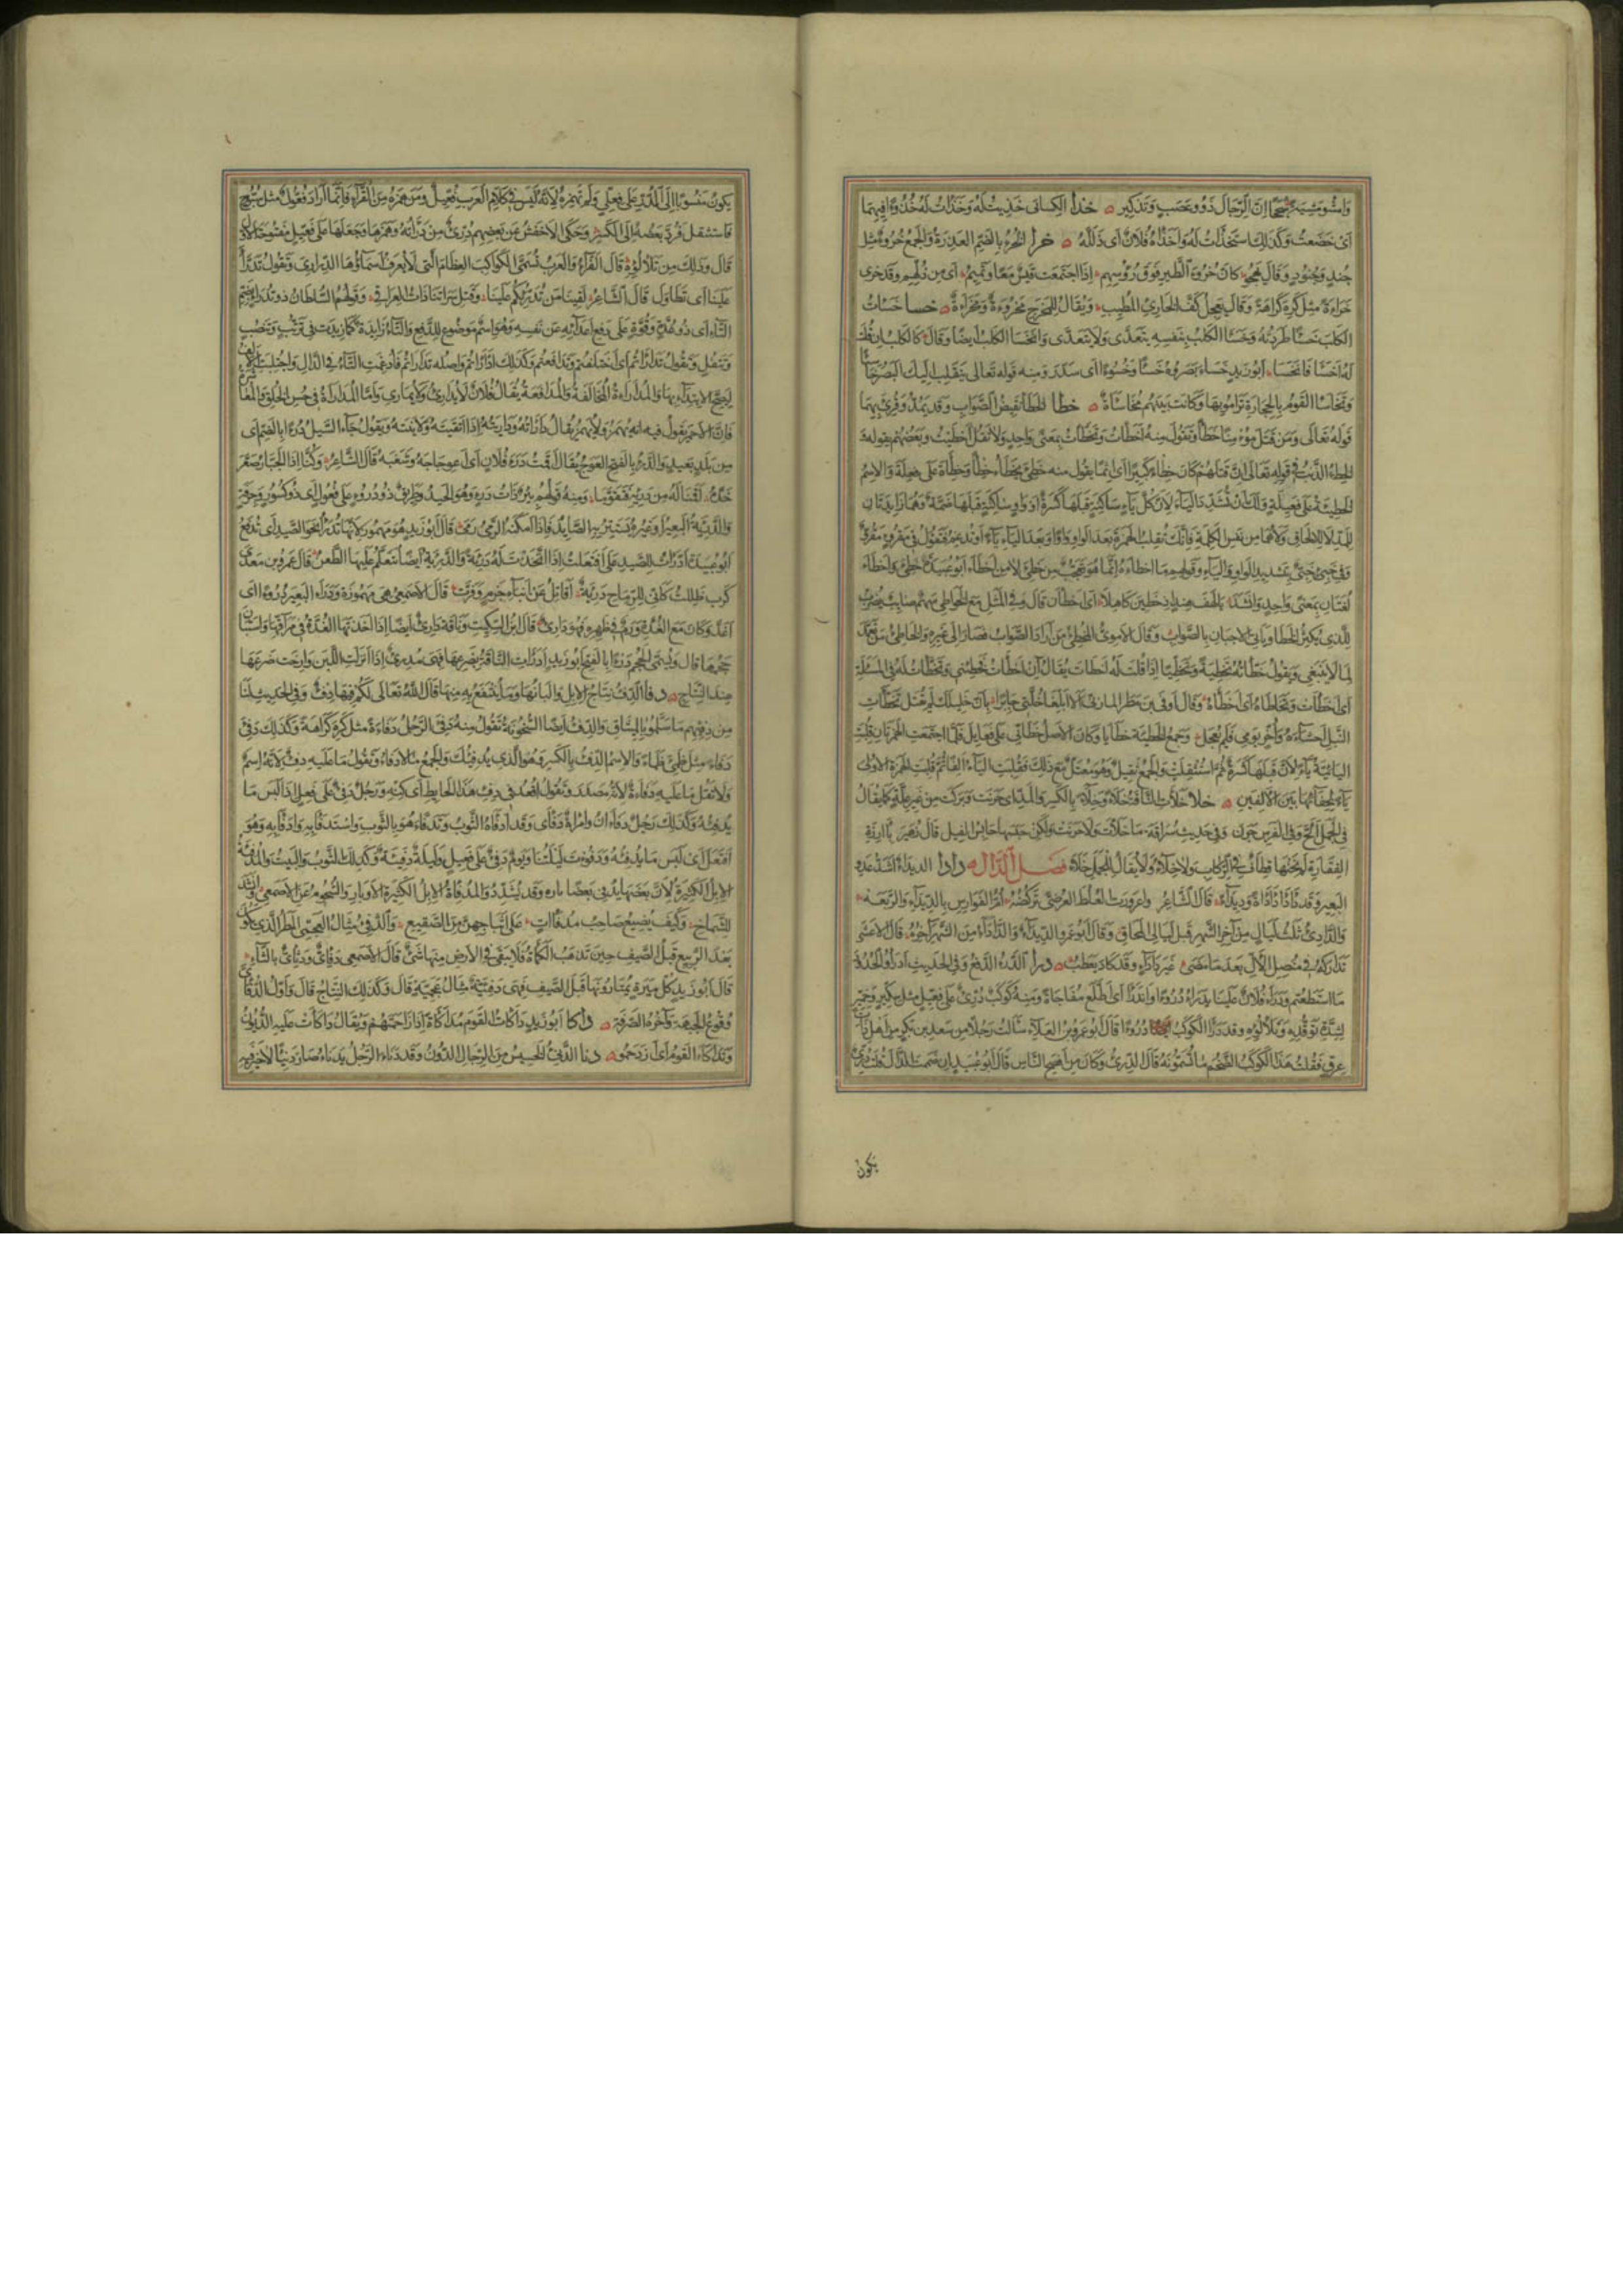 وَامْشُوا مِشْيَةً سُجُحًا اِنَّ الرِّجَالَ ذَوُو عَصْبٍ وَتَذْكِيرِ خذأ الكِسائى خَذِيتُ لَهُ وَخَذَأْتُ لَهُ خُذُوءًا فِيهِمَا
اَىْ خَضَعْتُ وَكَذَلِكَ اسْتَخْذَأْتُ لَهُ وَاَخْذَأَهُ فُلَانٌ اَى ذَلَّلَهُ خرأ الخُرْءُ بِالضَّمِّ العَذِرَةُ وَالجَمْعُ خُرُوءٌ مِثْلُ
جُنْدٍ وَجُنُودٍ وَقَالَ يَهْجُو كَاَنَّ خُرُوءَ الطَّيْرِ فَوْقَ رُؤُسِهِمْ اِذَا اجْتَمَعَتْ قَيْسٌ مَعًا وَتَمِيمُ اَى مِن ذُلِّهِمْ وَقَدْ خَرِىَ
خَرَاءَةً مِثْلُ كَرِهَ كَرَاهَةً وَقَالَ يُعْجِلُ كَفَّ الخَارِئِ المُطِيبِ وَيُقَالُ لِلْمَخْرَجِ مَخْرُوءَةٌ وَمَخْرَأَةٌ خسأ خَسَأْتُ
الكَلْبَ خَسْأً طَرَدْتُهُ وَخَسَأَ الكَلْبُ بِنَفْسِهِ يَتَعَدَّى وَلَا يَتَعَدَّى وَانْخَسَأَ الكَلْبُ اَيضًا وَقَالَ كَالكَلْبِ اِنْ قُلْتَ
لَهُ اخْسَأْ فَانْخَسَأْ اَبُو زَيدٍ خَسَأَ بَصَرُهُ خَسْأً وَخُسُوءًا اَى سَدِرَ وَمِنه قوله تَعَالَى يَنْقَلِبْ اِلَيْكَ البَصَرُ خَاسِئًا
وَتَخَاسَأَ القَوْمُ بِالحِجَارَةِ تَرَامَوْا بِهَا وَكَانَتْ بَيْنَهُم مُخَاسَأَةٌ خطأ الخَطَأُ نَقِيضُ الصَّوَابِ وَقَد يُمَدُّ وَقُرِئَ بِهِمَا
قَولَهُ تَعَالَى وَمَنْ قَتَلَ مُؤْمِنًا خَطَأً وَتَقُولُ مِنهُ اَخْطَأْتُ وَتَخَطَّأْتُ بِمَعنًى وَاحِدٍ وَلَا تَقُلْ اَخْطَيْتُ وَبَعْضُهُم يَقُولُهُ
الخِطْءُ الذَّنْبُ فى قَولِهِ تَعَالَى اِنَّ قَتْلَهُمْ كَانَ خِطْأً كَبِيرًا اَى اِثمًا يقُول مِنه خَطِئَ يَخْطَأُ خِطْأً وَخِطْأَةً عَلَى فِعْلَةٍ وَالاِسْمُ
الخَطِيئَةُ عَلَى فَعِيلَةٍ وَلَكَ اَن تُشَدِّدَ اليَاءَ لِاَنَّ كُلَّ يَاءٍ سَاكِنَةٍ قَبْلَهَا كَسْرَةٌ اَو وَاوٍ سَاكِنَةٍ قَبْلَهَا ضَمَّةٌ وَهُمَا زَايِدَتَانِ
لِلمَدِّ لَا لِلالحَاقِ وَلَا هُمَا مِن نَفسِ الكَلِمَةِ فَاِنَّكَ تَقْلِبُ الهَمْزَةَ بَعدَ الوَاوِ وَاوًا وَبَعدَ اليَاءِ يَاءً وَتُدْغِمُ فَتَقُولُ فِى مَقْرُوءٍ مَقْرُوٌّ
وَفى خَبِىءٍ خَبِىٌّ بِتَشدِيدِ الوَاوِ وَاليَاءِ وَقَولُهم مَا اَخْطَأَهُ اِنَّمَا هُوَ تَعَجُّبٌ مِن خَطِئَ لَا مِن اَخْطَأَ اَبُو عُبَيدَةَ خَطِئَ وَاَخْطَأَ
لُغَتَانِ بِمَعْنًى وَاحِدٍ وَاَنْشَدَ يَا لَهْفَ هِندٍ اِذْ خَطِئْنَ كَاهِلَا اَى اَخْطَأْنَ قَالَ وَفى المَثَل مَعَ الخَوَاطِئِ سَهْمٌ صَايِبٌ يُضْرَبُ
لِلَّذِى يُكْثِرُ الخَطَأَ وَيَاتى الاَحْيَانَ بِالصَّوَابِ وَقَالَ الاُمَوِىُّ المُخْطِئُ مَنْ اَرَادَ الصَّوَابَ فَصَارَ اِلَى غَيرِهِ وَالخَاطِئُ مَن تَعَمَّدَ
لِمَا لَا يَنْبَغِى وَيَقُولُ خَطَّأْتُهُ تَخْطِئَةً وَتَخْطِيئًا اِذَا قُلْتَ لَهُ اَخْطَأتَ يُقَالُ اِنْ اَخْطَأْتُ فَخَطِّئْنِى وَتَخَطَّأْتُ لَهُ فى المَسْئَلَةِ
اَى اَخْطَأْتُ وَتَخَاطَأَهُ اَى اَخْطَأَهُ وَقَالَ اَوْفَى بْن مَطَر المَازنى اَلَا اَبْلِغَا خُلَّتِى جَابِرًا بِاَنَّ خَلِيلَكَ لَمْ يُقْتَلِ تَخَطَّأَتِ
النَّبْلُ اَحْشَاءَهُ وَاُخِّرَ يَوْمِى فَلَمْ يُعْجَلِ وَجَمعُ الخَطِيئَة خَطَايَا وَكَانَ الاَصْلُ خَطَائِئَ عَلَى فَعَايِلَ فَلَمَّا اجتَمَعَتِ الهَمْزَتَانِ قُلِبَتِ
الثَانِيَةُ يَاءً لِاَنَّ قَبْلَهَا كَسْرَةً ثُمَّ اسْتُثْقِلَتْ وَالجَمْعُ ثَقِيلٌ وَهُوَ مُعْتَلٌّ مَعَ ذَلِكَ فَقُلِبَتِ اليَاءُ اَلِفًا ثُمَّ قُلِبَتِ الهَمْزَةُ الاُولَى
يَاءً لِخَفَائِهَا بَيْنَ الاَلِفَينِ خلأ خَلَأَتِ النَّاقَةُ خَلْأً وَخِلَاءً بِالكَسرِ وَالمَدِّ اى حَرَنَتْ وَبَرَكَتْ مِن غَيرِ عِلَّةٍ كَمَا يُقَالُ
فِى الجَمَلِ اَلَحَّ وَفى الفَرَسِ حَرَنَ وَفى حَدِيثِ سُرَاقَةَ مَا خَلَأَتْ وَلَا حَرَنَتْ وَلَكِن حَبَسَهَا حَابِسُ الفِيل قَالَ زُهَير بِآرِزَةِ
الفَقَارَةِ لَمْ يَخُنْهَا قِطَافٌ فى الرِّكَابِ وَلَا خِلَاءُ وَلَا يُقَالُ لِلجَمَلِ خَلَأَ فصل الدال دأدأ الديداء اَشَدُّ عَدْوِ
البَعِيرِ وَقَد دَأْدَأَ دَأْدَأَةً وَدِيدَاءً قَالَ الشَّاعِرُ وَاعْرَوْرَتِ العُلُطَ العُرْضِىَّ تَرْكُضُهُ اُمُّ الفَوَارِسِ بِالدِّيدَاءِ وَالرَّبَعَه
وَالدَّادِئُ ثَلَثُ لَيَالٍ مِن آخِرِ الشَّهرِ قَبْلَ لَيَالِى المُحَاقِ وَقَالَ اَبُو عَمْرٍو الدِّيدَاءُ وَالدَّأْدَاءُ مِنَ الشَّهرِ آخِرُهُ قَالَ الاَعْشَى
تَدَارَكَهُ فى مُنْصِلِ الاَلِّ بَعدَ مَا مَضَى غَيرَ دَأْدَاءٍ وَقَد كَادَ يَعْطَبُ درأ الدَّرْءُ الدَّفْعُ وَفى الحَدِيثِ ادْرَؤُا الحُدُودَ
مَا اسْتَطَعْتُم وَدَرَأَ فُلَانٌ عَلَينَا يَدْرَأُ دُرُوءًا وَانْدَرَأَ اَى طَلَعَ مُفَاجَاةً وَمِنهُ كَوْكَبٌ دِرِّىءٌ عَلَى فِعِّيلٍ مِثلُ سِكِّيرٍ وَخِمِّيرٍ
لِشِدَّةِ تَوَقُّدِهِ وَتَلَأْلُؤِهِ وَقَد دَرَأَ الكَوْكَبُ دُرُوءًا قَالَ اَبُو عَمرِو بنُ العَلَاءِ سَاَلْتُ رَجُلًا مِن سَعدِ بنِ بَكرٍ مِن اَهلِ ذَاتِ
عِرقٍ فَقُلْتُ هَذَا الكَوكَبُ الضَّخْمُ مَا تُسَمُّونَهُ قَالَ الدِّرِّىءُ وَكَانَ مِن اَفصَحِ النَّاسِ قَالَ اَبُو عُبَيدٍ اِن ضَمَمْتَ الدَّالَ قُلْتَ دُرِّىٌّ
يكون
يَكُونُ مَنْسُوبًا اِلَى الدُّرِّ عَلَى فُعْلِىٍّ وَلَمْ تَهْمِزْهُ لِاَنَّهُ لَيْسَ فى كَلَامِ العَرَبِ فُعِّيلٌ وَمَن هَمَزَهُ مِنَ القُرَّاءِ فَاِنَّمَا اَرَادَ فُعُّولٌ مثل سُبُّوحٍ
فَاستُثْقِلَ فَرُدَّ بَعْضُهُ اِلَى الكَسْرِ وَحَكَى الاَخفَشُ عَن بَعضِهِم دَرِّىءٌ مِن دَرَأْتُهُ وَهَمَزَهَا وَجَعَلَهَا عَلَى فَعِّيلٍ مَفْتُوحَةَ الاَوَّلِ
قَالَ وَذَلِكَ مِن تَلَأْلُؤِهِ قَالَ الفَرَّاءُ وَالعَرَبُ تُسَمِّى الكَوَاكِبَ العِظَامَ الَّتِى لَا يُعرَفُ اَسمَاؤُهَا الدَّرَارِىَ وَتَقُولُ تَدَرَّأَ
عَلَينَا اَى تَطَاوَلَ قَالَ الشَّاعِرُ لَقِينَا مِن تَدَرُّئِكُمْ عَلَينَا وَقَتْلِ سَرَاتِنَا ذَاتَ العَرَاقِى وَقَولُهُمُ السُّلطَانُ ذُو تُدْرَأٍ بِضَمِّ
التَّاءِ اَى ذُو عُدَّةٍ وَقُوَّةٍ عَلَى دَفعِ اَعدَائِهِ عَن نَفسِهِ وَهُوَ اسمٌ مَوضُوعٌ لِلدَّفعِ وَالتَّاءُ زَايِدَةٌ كَمَا زِيدَت فى تُرْتُبٍ وَتَنْضُبٍ
وَتَتْفُلٍ وَتَقُولُ تَدَارَأْتُم اَى اخْتَلَفتُم وَتَدَافَعتُم وَكَذَلِكَ ادَّارَأْتُم وَاَصلُه تَدَارَأتُم فَاُدغِمَت التَّاءُ فى الدَّالِ وَاجْتُلِبَتِ الاَلِفُ
لِيَصِحَّ الاِبتِدَاءُ بِهَا وَالمُدَارَاةُ المُخَالَفَةُ وَالمُدَافَعَةُ يُقَالُ فُلَانٌ لَا يُدَارِئُ وَلَا يُمَارِى وَاَمَّا المُدَارَاةُ فى حُسنِ الخُلُقِ وَالمُعَاشَرَةِ
فَاِنَّ الاَحمَرَ يَقُولُ فيه انه يُهمَزُ وَلَا يُهمَزُ يُقَالُ دَارَأْتُهُ وَدَارَيْتُهُ اِذَا اتَّقَيتَهُ وَلَايَنتَهُ وَيَقُولُ جَاءَ السَّيلُ دُرْءًا بِالضَّمِّ اى
مِن بَلَدٍ بَعِيدٍ وَالدَّرْءُ بِالفَتحِ العَوَجُ يُقَالُ اَقَمْتُ دَرْءَ فُلَانٍ اَى اعوِجَاجَهُ وَشَغَبَهُ قَالَ الشَّاعِرُ وَكُنَّا اِذَا الجَبَّارُ صَعَّرَ
خَدَّهُ اَقَمْنَا لَهُ مِن دَرْئِهِ فَتَقَوَّمَا وَمِنهُ قَولُهُم بِئْرٌ ذَاتُ دَرْءٍ وَهُوَ الحَيدُ وَطَرِيقٌ ذُو دُرُوءٍ عَلَى فُعُولٍ اَى ذُو كُسُورٍ وَجِرَفَةٍ
وَالدَّرِيئَةُ البَعِيرُ اَو غَيرُهُ يَستَتِرُ بِهِ الصَّايِدُ فَاِذَا اَمكَنَهُ الرَّمىُ رَمَى قَالَ اَبُو زَيدٍ هُوَ مَهمُوزٌ لِاَنَّهَا تُدْرَأُ نَحوَ الصَّيدِ اَى تُدفَعُ
اَبُو عُبَيدَةَ ادَّرَأْتُ لِلصَّيدِ عَلَى افْتَعَلْتُ اِذَا اتَّخَذْتَ لَهُ دَرِيَّةً وَالدَّرِيَّةُ اَيضًا حَلقَةٌ يُتَعَلَّمُ عَلَيهَا الطَّعنُ قَالَ عَمرُو بن مَعدِى
كَرِب ظَلِلْتُ كَاَنِّى لِلرِّمَاحِ دَرِيَّةٌ اُقَاتِلُ عَن اَبنَاءِ جَرمٍ وَفَرَّتِ قَالَ الاَصمَعِى هِى مَهمُوزَة وَدَرَأَ البَعِيرُ دُرُوءًا اَى
اَغَدَّ وَكَانَ مَعَ الغُدَّةِ وَرَمٌ فى ظَهرِهِ فَهُوَ دَارِئٌ قَالَ ابنُ السِّكِّيتِ وَنَاقَةٌ دَارِئٌ اَيضًا اِذَا اَخَذَتْهَا الغُدَّةُ فى مَرَاقِّهَا وَاستَبَانَ
حَجْمُهَا قَالَ وَيُسَمَّى الحَجْمُ دَرْءًا بِالفَتحِ اَبُو زَيدٍ اَدرَأَتِ النَّاقَةُ بِضَرعِهَا فَهِىَ مُدْرِئٌ اِذَا اَنزَلَتِ اللَّبَنَ وَاَرخَت ضَرعَهَا
عِندَ النِّتَاجِ دفأ الدِّفءُ نِتَاجُ الاِبِلِ وَاَلبَانُهَا وَمَا يُنتَفَعُ بِهِ مِنهَا قَالَ اللهُ تَعَالَى لَكُمْ فِيهَا دِفءٌ وَفى الحَدِيثِ لَنَا
مِن دِفئِهِم مَا سَلَّمُوا بِالمِيثَاقِ وَالدِّفءُ اَيضًا السُّخُونَةُ تَقُولُ مِنهُ دَفِئَ الرَّجُلُ دَفَاءَةً مثل كَرِهَ كَرَاهَةً وَكَذَلِكَ دَفِئَ
دَفَأً مِثلُ ظَمِئَ ظَمَأً وَالاِسمُ الدِّفءُ بِالكَسرِ وَهُوَ الَّذِى يُدفِئُكَ وَالجَمعُ الاَدفَاءُ وَتَقُولُ مَا عَلَيهِ دِفءٌ لِاَنَّهُ اِسمٌ
وَلَا تَقُل مَا عَلَيهِ دَفَاءَةٌ لِاَنَّهُ مَصدَرٌ وَتَقُولُ اقعُد فى دِفءِ هَذَا الحَايِطِ اَى كِنِّهِ وَرَجُلٌ دَفِئٌ عَلَى فَعِلٍ اِذَا لَبِسَ مَا
يُدفِئُهُ وَكَذَلِكَ رَجُلٌ دَفْآنُ وَامرَاَةٌ دَفْأَى وَقَد اَدفَأَهُ الثَّوبُ وَتَدَفَّأَ هُوَ بِالثَّوبِ وَاستَدفَأَ بِهِ وَادَّفَأَ بِهِ وَهُوَ
افتَعَلَ اَى لَبِسَ مَا يُدفِئُهُ وَدَفُؤَت لَيلَتُنَا وَيَومٌ دَفِىءٌ عَلَى فَعِيلٍ وَلَيلَةٌ دَفِيئَةٌ وَكَذَلِكَ الثَّوبُ وَالبَيتُ وَالمُدفِئَةُ
الاِبِلُ الكَثِيرَةُ لِاَنَّ بَعضَهَا يُدفِئُ بَعضًا وَقَد يُشَدَّدُ وَالمُدفَأَةُ الاِبِلُ الكَثِيرَةُ الاَوبَارِ وَالشُّحُومِ عَنِ الاَصمَعِىِّ وَاَنشَدَ
لِلشَّمَّاخِ وَكَيفَ يَضِيعُ صَاحِبُ مُدْفَآتٍ عَلَى اَثبَاجِهِنَّ مِنَ الصَّقِيعِ وَالدَّفَئِىُّ مِثَالُ العَجَمِىِّ المَطَرُ الَّذِى يَكُونُ
بَعدَ الرَّبِيعِ قَبلَ الصَّيفِ حِينَ تَذهَبُ الكَمأَةُ فَلَا يَبقَى فى الاَرضِ مِنهَا شَىءٌ قَالَ الاَصمَعِى دَفَئِىٌّ وَدَثَئِىٌّ بِالثَّاءِ
قَالَ اَبُو زَيدٍ كُلُّ مِيرَةٍ يَمتَارُونَهَا قَبلَ الصَّيفِ فَهِىَ دَفَئِيَّةٌ مِثَالُ عَجَمِيَّةٍ قَالَ وَكَذَلِكَ النِّتَاجُ قَالَ وَاَوَّلُ الدَّفَئِىِّ
وُقُوعُ الجَبهَةِ وَآخِرُهُ الصَّرفَةُ دأكأ اَبُو زَيدٍ دَاكَأْتُ القَومَ مُدَاكَأَةً اِذَا زَاحَمتَهُم وَيُقَالُ دَاكَأَتْ عَلَيهِ الدُّيُونُ
وَتَدَاكَأَ القَومُ اَى ازدَحَمُوا دنأ الدَّنِىءُ الخَسِيسُ مِنَ الرِّجَالِ الدُّونُ وَقَد دَنَأَ الرَّجُلُ يَدنَأُ صَارَ دَنِيئًا لَا خَيرَ فِيهِ